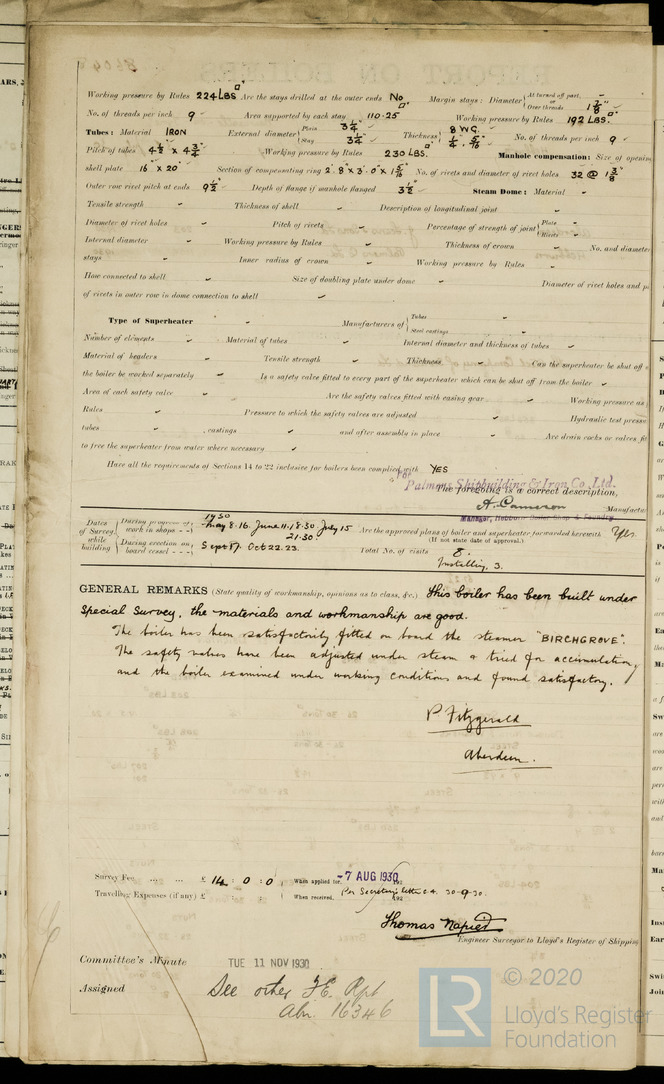 Working pressure by Rules 224 LBS □" Are the stays drilled at the outer ends No Margin stays: Diameter { At turned off part, or Over threads 1⅞"
No. of threads per inch 9 Area supported by each stay 110.25 □" Working pressure by Rules 192 LBS. □"
Tubes: Material IRON External diameter { Plain 3¼" Stay 3¼" Thickness { 8 W.G. ¼" . 5/16" No. of threads per inch 9
Pitch of tubes 4½" x 4¾" Working pressure by Rules 230 LBS. Manhole compensation: Size of openin
shell plate 16" x 20" Section of compensating ring 2'.8" x 3'.0" x 1 5/16" No. of rivets and diameter of rivet holes 32 @ 1⅜"
Outer row rivet pitch at ends 9½" Depth of flange if manhole flanged 3½" Steam Dome: Material
Tensile strength Thickness of shell Description of longitudinal joint
Diameter of rivet holes Pitch of rivets Percentage of strength of joint { Plate Rivets
Internal diameter Working pressure by Rules Thickness of crown No. and diameter
stays Inner radius of crown Working pressure by Rules
How connected to shell Size of doubling plate under dome Diameter of rivet holes and pi
of rivets in outer row in dome connection to shell
Type of Superheater Manufacturers of { Tubes Steel castings
Number of elements Material of tubes Internal diameter and thickness of tubes
Material of headers Tensile strength Thickness Can the superheater be shut off
the boiler be worked separately Is a safety valve fitted to every part of the superheater which can be shut off from the boiler
Area of each safety valve Are the safety valves fitted with easing gear Working pressure as
Rules Pressure to which the safety valves are adjusted Hydraulic test pressu
tubes , castings and after assembly in place Are drain cocks or valves fit
to free the superheater from water where necessary
Have all the requirements of Sections 14 to 22 inclusive for boilers been complied with YES
For Palmers Shipbuilding & Iron Co., Ltd.
The foregoing is a correct description,
A. Cameron Manufactu
Manager, Hebburn Boiler Shop & Foundry
Dates of Survey while building { During progress of work in shops - - 1930 May 8.16. June 11.18.30 July 15 21.30 Are the approved plans of boiler and superheater forwarded herewith Yes
(If not state date of approval.)
During erection on board vessel - - - Sept 17. Oct 22.23. Total No. of visits 8.
Installing 3.
GENERAL REMARKS (State quality of workmanship, opinions as to class, &c.) This boiler has been built under
Special Survey, the materials and workmanship are good.
The boiler has been satisfactorily fitted on board the steamer "BIRCHGROVE".
The safety valves have been adjusted under steam & tried for accumulation,
and the boiler examined under working conditions and found satisfactory.
P Fitzgerald
Aberdeen.
Survey Fee ... ... £ 14 : 0 : 0 When applied for, -7 AUG 1930 192
Travelling Expenses (if any) £ : : When received, Per Secretary's letter 30-9-30. 192
Thomas Napier
Engineer Surveyor to Lloyd's Register of Shipping
Committee's Minute TUE 11 NOV 1930
Assigned See other F.E. Rpt
Abn. 16346
LR © 2020
Lloyd's Register
Foundation